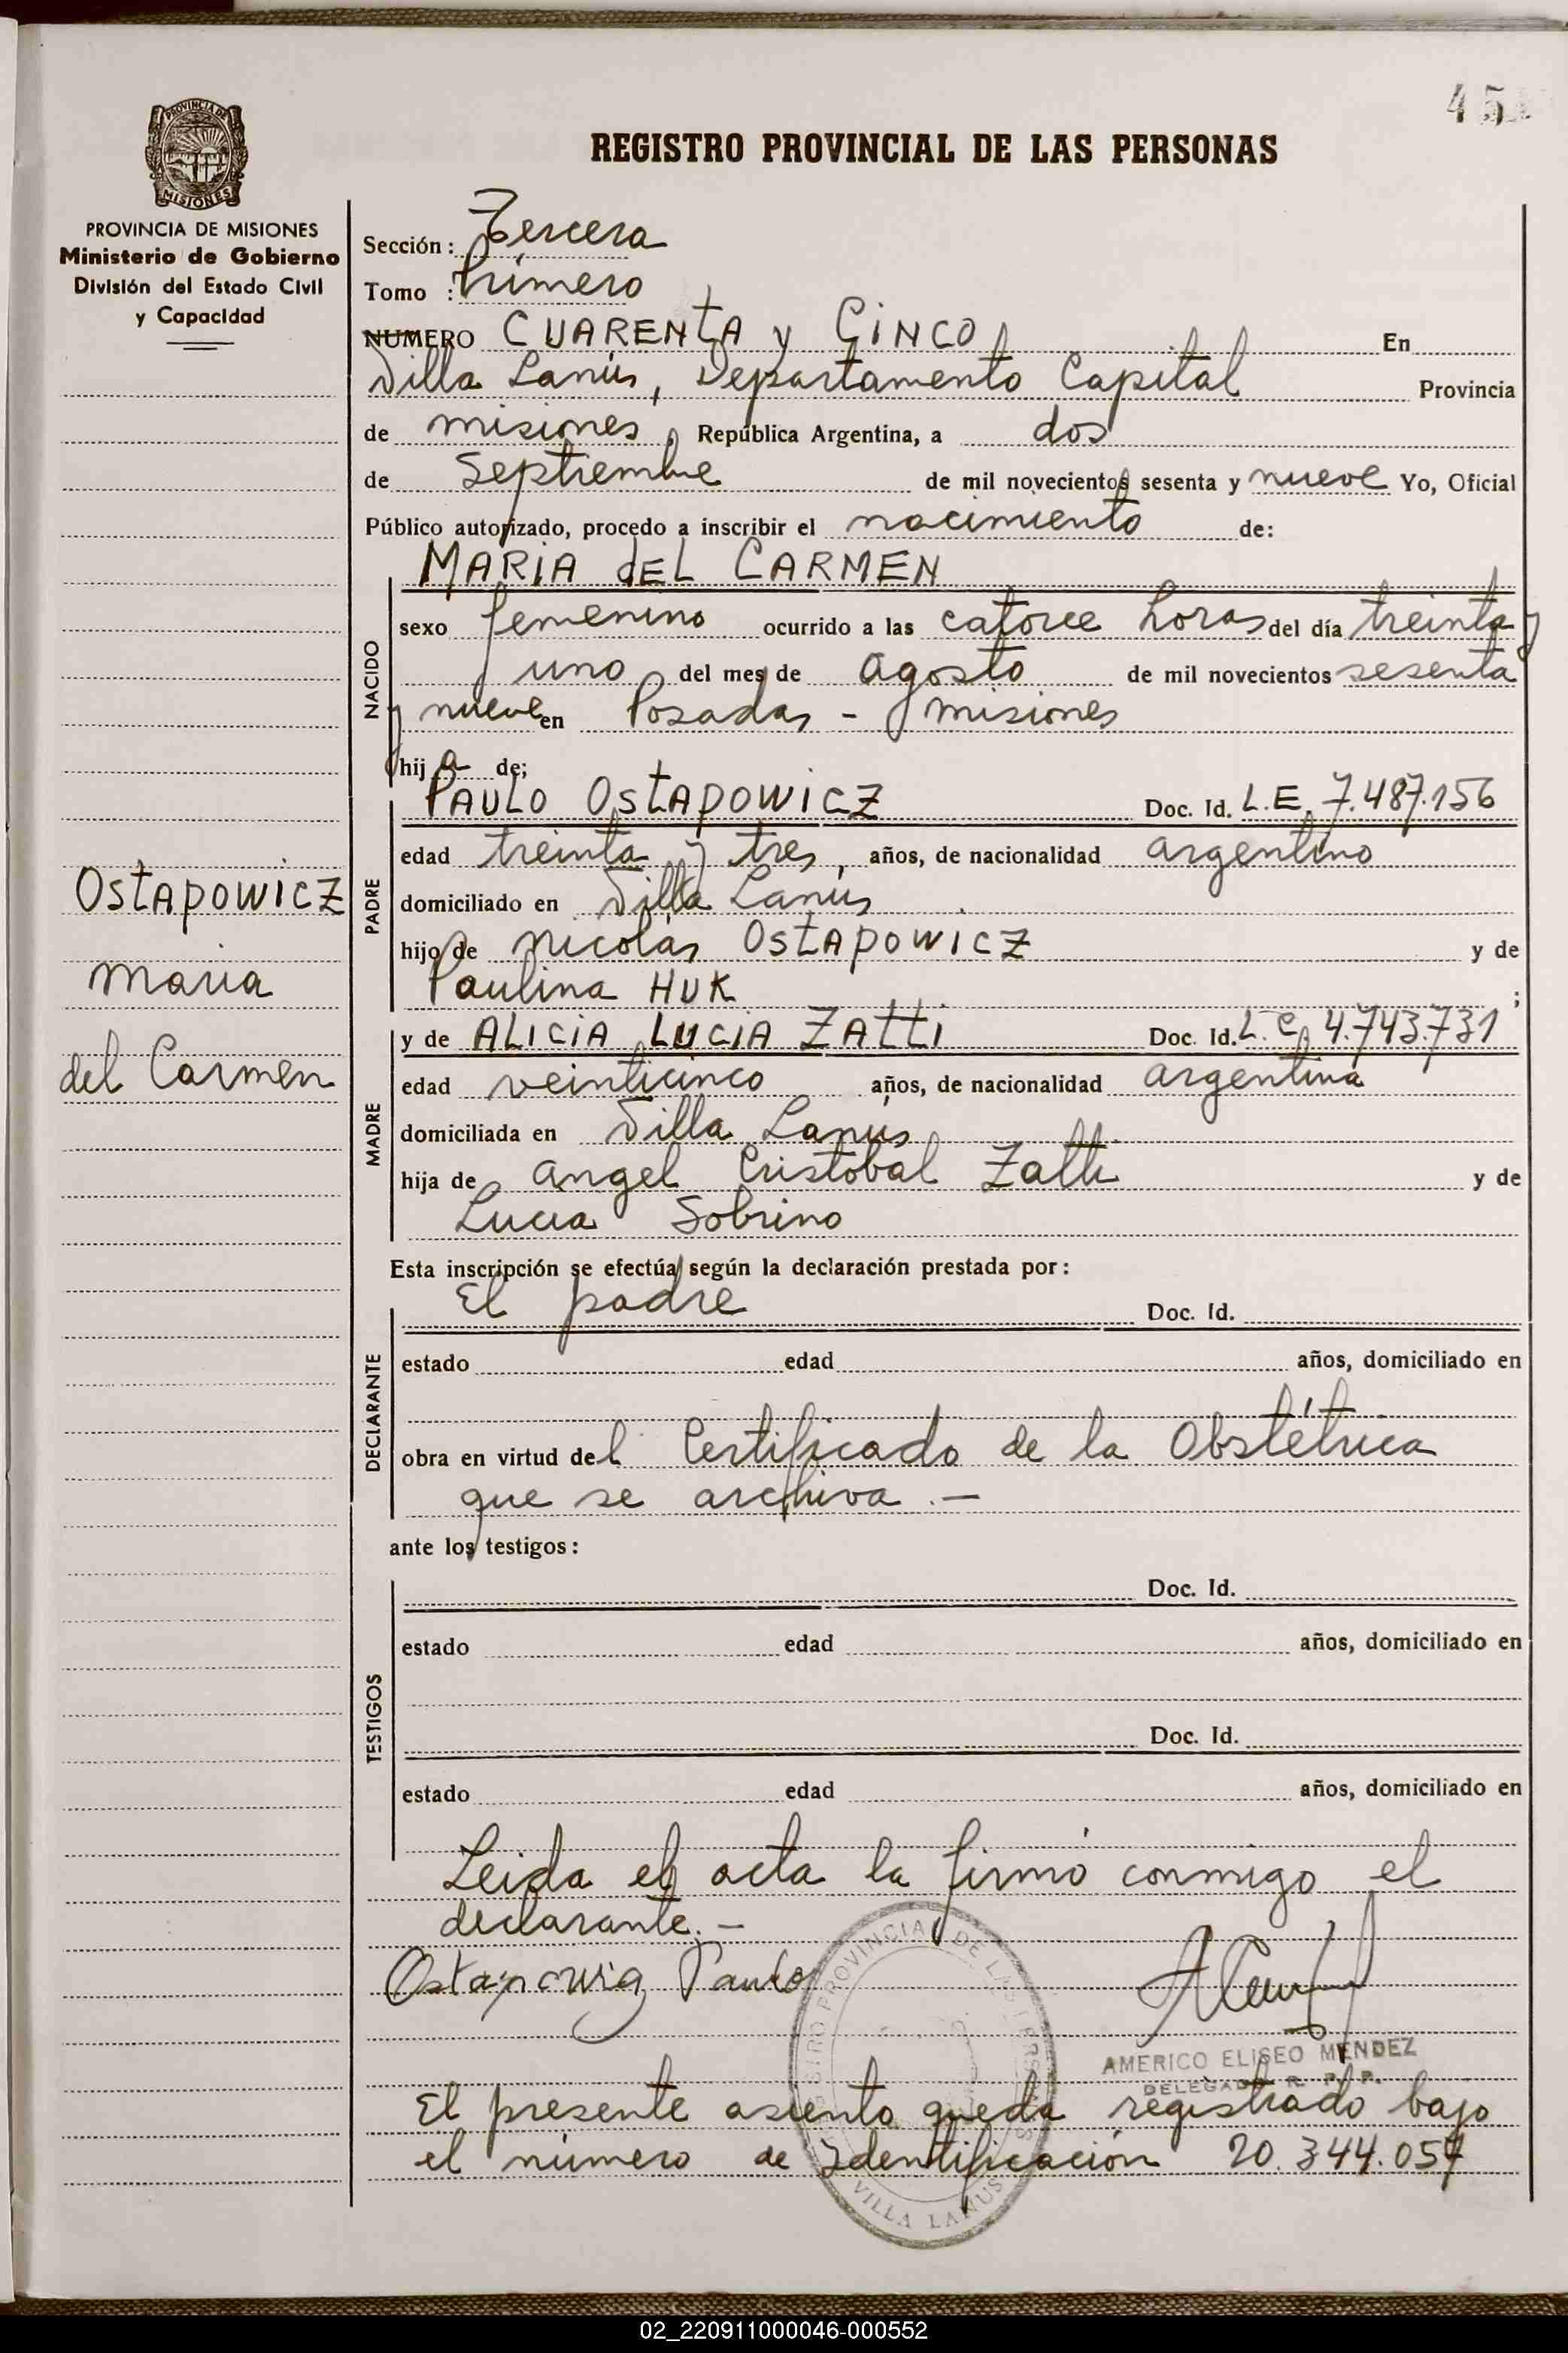 451
PROVINCIA DE
MISIONES
PROVINCIA DE MISIONES
Ministerio de Gobierno
División del Estado Civil
y Capacidad
Ostapowicz
Maria
del Carmen
REGISTRO PROVINCIAL DE LAS PERSONAS
Sección: Tercera
Tomo : Primero
NUMERO CUARENTA y CINCO En
Villa Lanús, Departamento Capital Provincia
de Misiones, República Argentina, a dos
de Septiembre de mil novecientos sesenta y nueve Yo, Oficial
Público autorizado, procedo a inscribir el nacimiento de:
MARIA dEL CARMEN
NACIDO
sexo femenino ocurrido a las catorce horas del día treinta y
uno del mes de Agosto de mil novecientos sesenta
y nueve en Posadas - Misiones
hija de;
PADRE
PAULO OStAPOWICZ Doc. Id. L.E. 7.487.156
edad treinta y tres, años, de nacionalidad argentino
domiciliado en Villa Lanús
hijo de Nicolás OStAPOWICZ y de
Paulina HUK ;
MADRE
y de ALICIA LUCIA ZAttI Doc. Id. L.C. 4.743.731
edad veinticinco años, de nacionalidad argentina
domiciliada en Villa Lanús
hija de Angel Cristobal Zatti y de
Lucia Sobrino
Esta inscripción se efectúa según la declaración prestada por:
DECLARANTE
El padre Doc. Id.
estado edad años, domiciliado en
obra en virtud del Certificado de la Obstétrica
que se archiva.—
ante los testigos:
TESTIGOS
Doc. Id.
estado edad años, domiciliado en
Doc. Id.
estado edad años, domiciliado en
Leida el acta la firmó conmigo el
declarante.—
Ostapowig Paulo
REGISTRO PROVINCIAL DE LAS PERSONAS
VILLA LANUS
AMERICO ELISEO MENDEZ
DELEGADO R. P. P.
El presente asiento queda registrado bajo
el número de Identificación 20.344.057
02_220911000046-000552